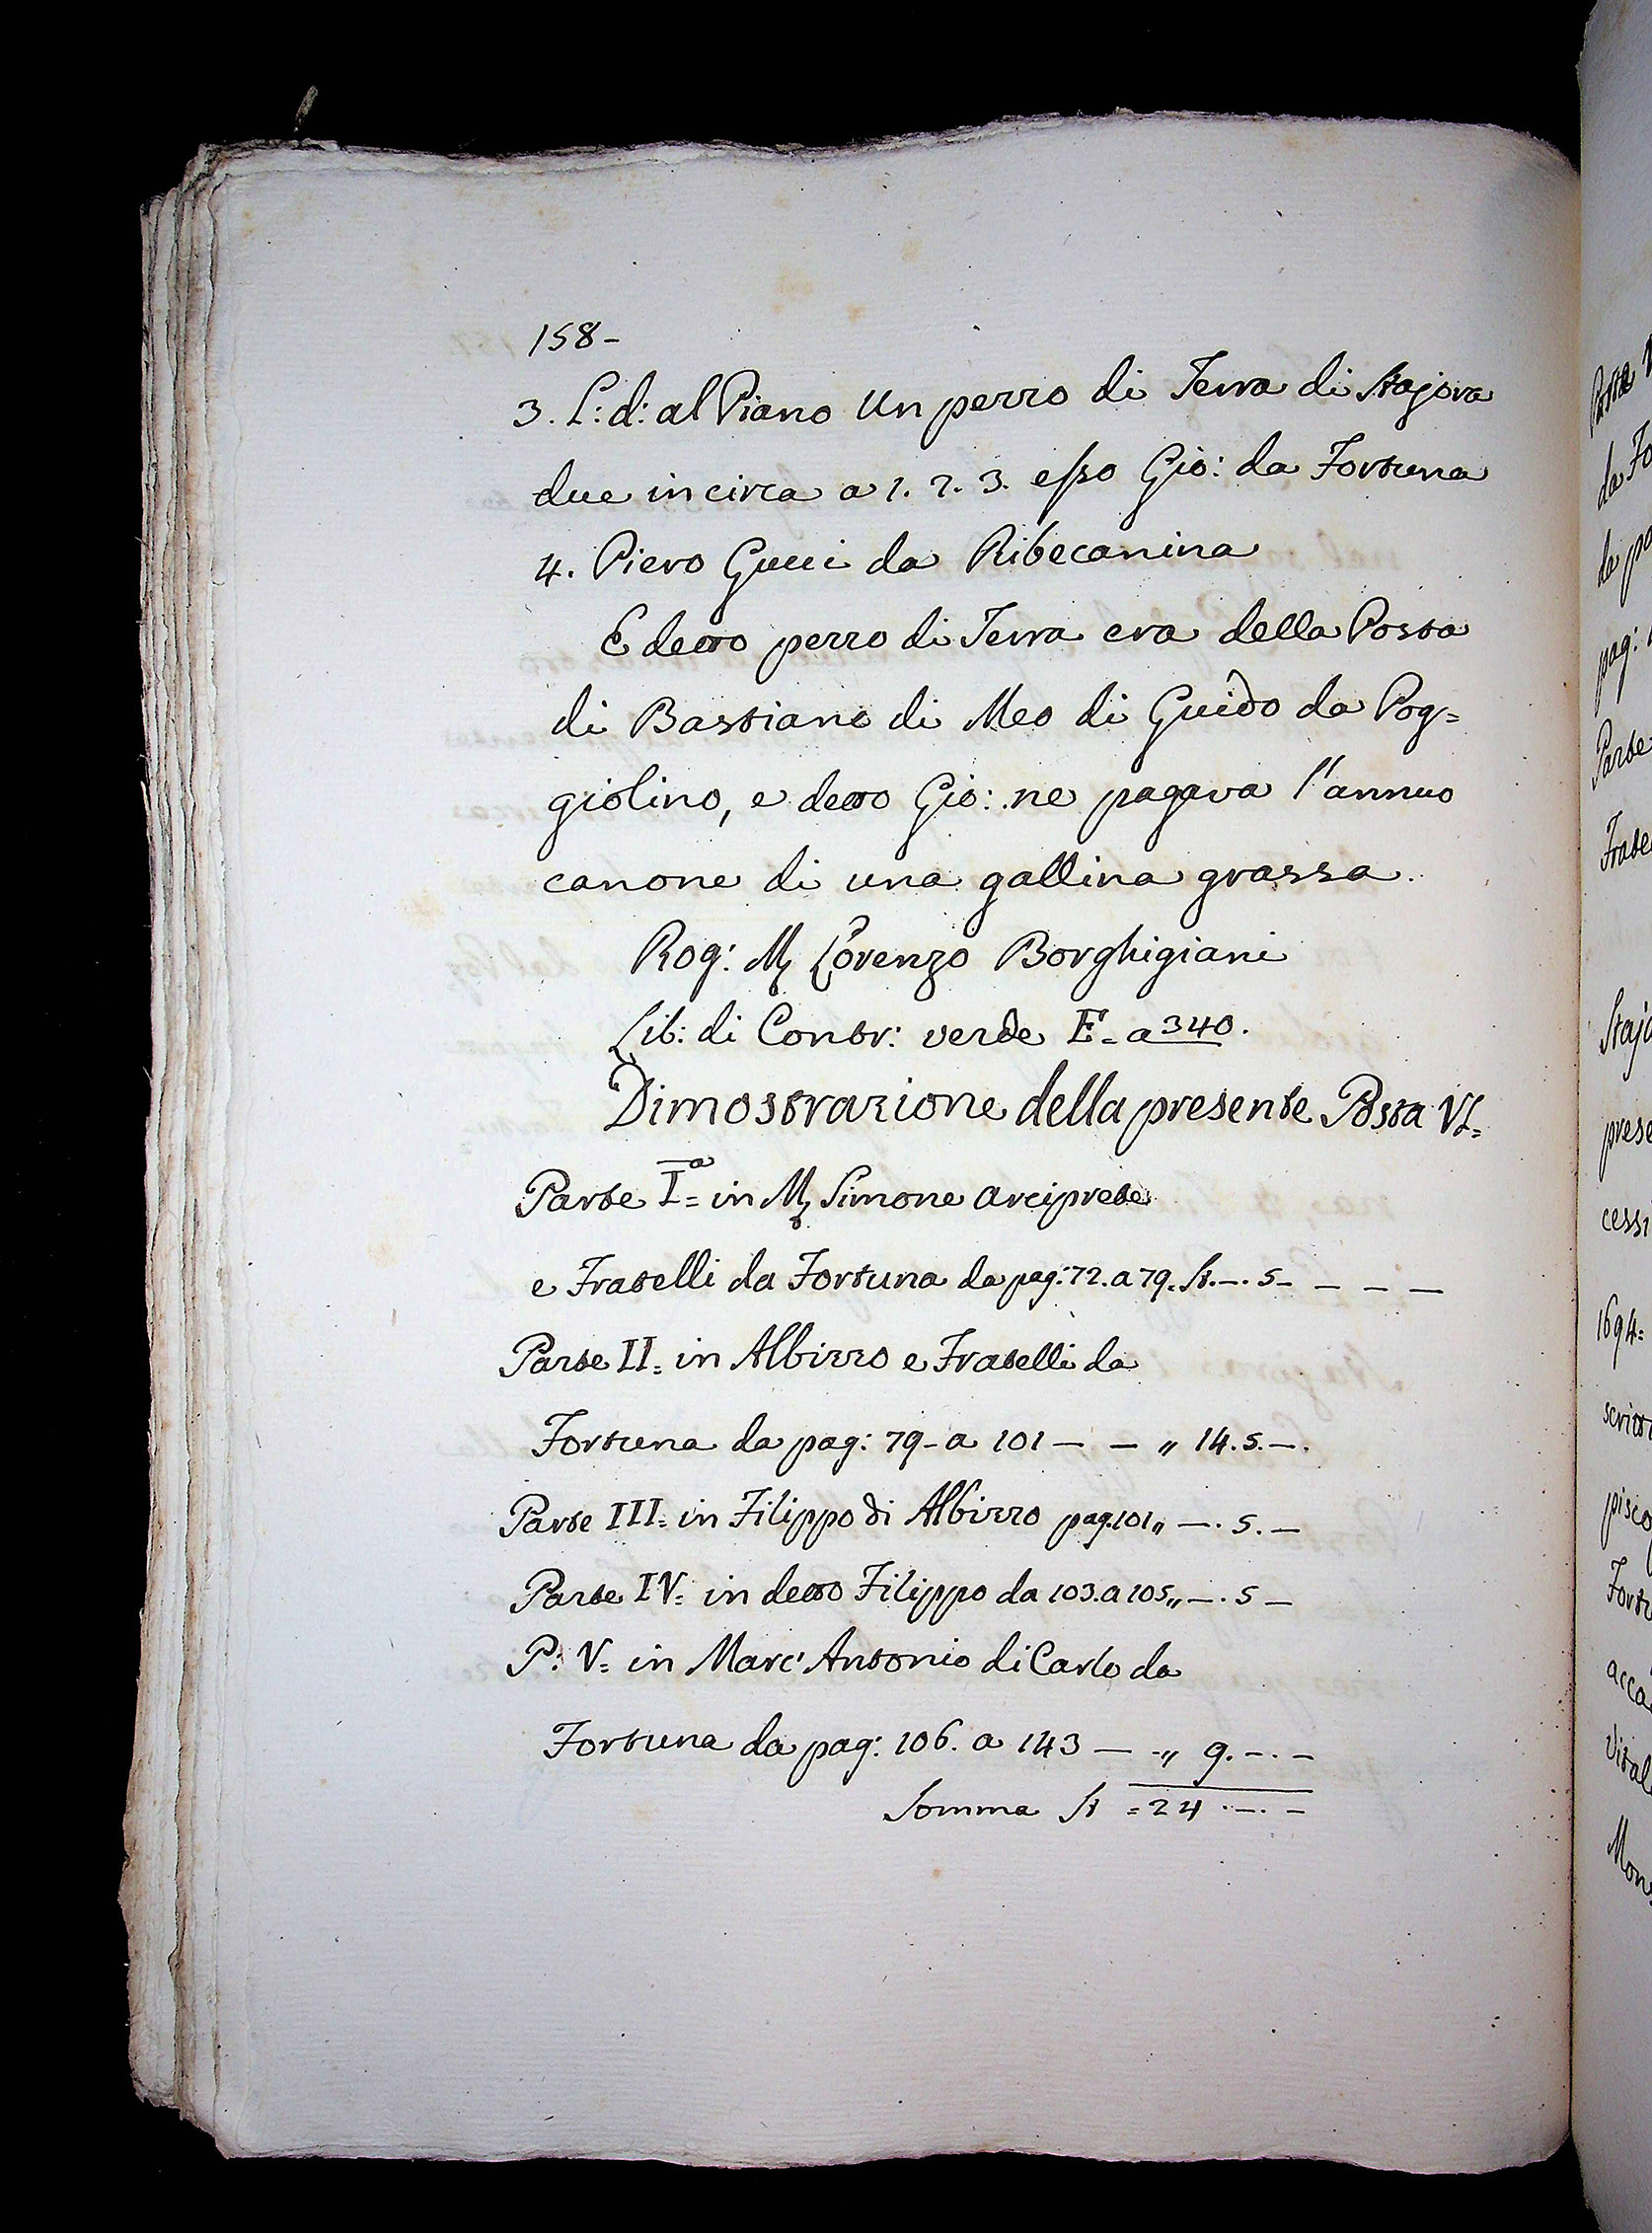 158-
3. L: d: al Piano Un pezzo di Terra di Stajora
due in circa a 1. 2. 3. esso Gio: da Fortuna
4. Piero Gucci da Ribecanina
E detto pezzo di Terra era della Posta
di Bastiano di Meo di Guido da Pog=
giolino, e detto Gio: ne pagava l'annuo
canone di una gallina grassa.
Rog: Lorenzo Borghigiani
Lib: di Contr: verde E= a 340.
Dimostrazione della presente Posta VI=
Parte Iª= in Simone arciprete
e Fratelli da Fortuna da pag: 72. a 79. St. —. 5 — — — —
Parte II= in Albizzo e Fratelli da
Fortuna da pag: 79 - a 101 — — „ 14. 5. —.
Parte III= in Filippo di Albizzo pag. 101 „ —. 5. —
Parte IV= in detto Filippo da 103. a 105 „ —. 5 —
P: V= in Marc' Antonio di Carlo da
Fortuna da pag: 106. a 143 — -„ 9. —. —
Somma St = 24 . —. —
Posta
da Fo
da pa
pag:
Parte
Frate
Staj
prese
cessi
1694=
scritt
pisco
Fort
acca
Vital
Mon